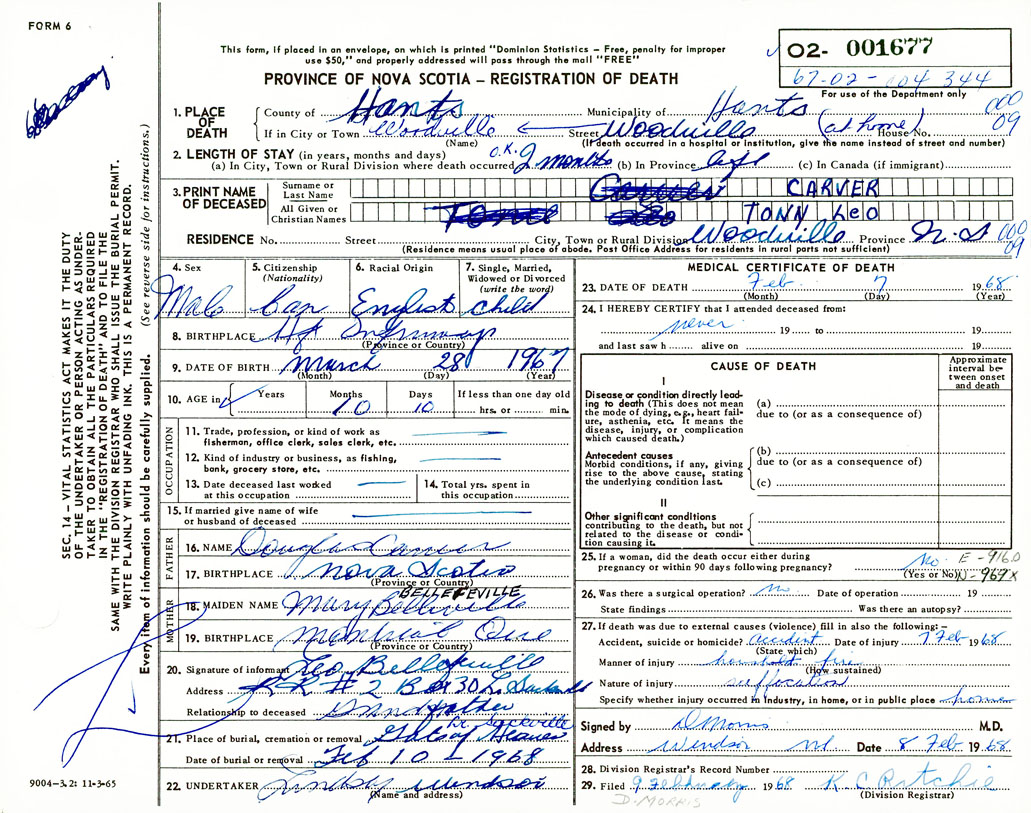 FORM 6
This form, if placed in an envelope, on which is printed "Dominion Statistics – Free, penalty for improper
use $50," and properly addressed will pass through the mail "FREE"
PROVINCE OF NOVA SCOTIA – REGISTRATION OF DEATH
02- 001677
67-02-004344
For use of the Department only
1. PLACE OF DEATH
County of Hants Municipality of Hants 000
If in City or Town Woodville Street Woodville (at home) House No. 09
(Name) (If death occurred in a hospital or institution, give the name instead of street and number)
2. LENGTH OF STAY (in years, months and days) O.K.
(a) In City, Town or Rural Division where death occurred 2 months (b) In Province Life (c) In Canada (if immigrant)
3. PRINT NAME OF DECEASED
Surname or Last Name CARVER
All Given or Christian Names TONN LeO
RESIDENCE No. Street City, Town or Rural Division Woodville Province N.S 000 09
(Residence means usual place of abode. Post Office Address for residents in rural parts not sufficient)
4. Sex Male
5. Citizenship (Nationality) Can
6. Racial Origin English
7. Single, Married, Widowed or Divorced (write the word) child
8. BIRTHPLACE Hfx Infirmary
(Province or Country)
9. DATE OF BIRTH March 28 1967
(Month) (Day) (Year)
10. AGE in Years Months 10 Days 10 If less than one day old hrs. or min.
OCCUPATION
11. Trade, profession, or kind of work as
fisherman, office clerk, sales clerk, etc.
12. Kind of industry or business, as fishing,
bank, grocery store, etc.
13. Date deceased last worked
at this occupation
14. Total yrs. spent in
this occupation
15. If married give name of wife
or husband of deceased
FATHER
16. NAME Douglas Carver
17. BIRTHPLACE Nova Scotia
(Province or Country)
MOTHER
BELLEFEVILLE
18. MAIDEN NAME Mary
19. BIRTHPLACE Montreal Que
(Province or Country)
20. Signature of informant Leo
Address R R # 2 Box 30 L. Sackville
Relationship to deceased Grandfather
Lr. Sackville
21. Place of burial, cremation or removal Gate of Heaven
Date of burial or removal Feb 10 – 1968
22. UNDERTAKER Lindsay Windsor
(Name and address)
MEDICAL CERTIFICATE OF DEATH
23. DATE OF DEATH Feb. 7 1968
(Month) (Day) (Year)
24. I HEREBY CERTIFY that I attended deceased from:
never 19 to 19
and last saw h alive on 19
CAUSE OF DEATH
Approximate interval between onset and death
I
Disease or condition directly leading
to death (This does not mean
the mode of dying, e.g., heart failure,
asthenia, etc. It means the
disease, injury, or complication
which caused death.)
(a)
due to (or as a consequence of)
Antecedent causes
Morbid conditions, if any, giving
rise to the above cause, stating
the underlying condition last.
(b)
due to (or as a consequence of)
(c)
II
Other significant conditions
contributing to the death, but not
related to the disease or condition
causing it.
25. If a woman, did the death occur either during
pregnancy or within 90 days following pregnancy? No.
(Yes or No)
E-916.0
N-969X
26. Was there a surgical operation? no. Date of operation 19
State findings Was there an autopsy?
27. If death was due to external causes (violence) fill in also the following:–
Accident, suicide or homicide? accident Date of injury 7 Feb 1968
(State which)
Manner of injury household fire
(How sustained)
Nature of injury suffocation
Specify whether injury occurred in industry, in home, or in public place home
Signed by D Morris M.D.
Address Windsor NS Date 8 Feb 1968
28. Division Registrar's Record Number
29. Filed 9 February 1968 K C Ritchie
D. MORRIS (Division Registrar)
SEC. 14 – VITAL STATISTICS ACT MAKES IT THE DUTY
OF THE UNDERTAKER OR PERSON ACTING AS UNDER-
TAKER TO OBTAIN ALL THE PARTICULARS REQUIRED
IN THE "REGISTRATION OF DEATH" AND TO FILE THE
SAME WITH THE DIVISION REGISTRAR WHO SHALL ISSUE THE BURIAL PERMIT.
WRITE PLAINLY WITH UNFADING INK. THIS IS A PERMANENT RECORD.
Every item of information should be carefully supplied. (See reverse side for instructions.)
9004-3.2: 11-3-65